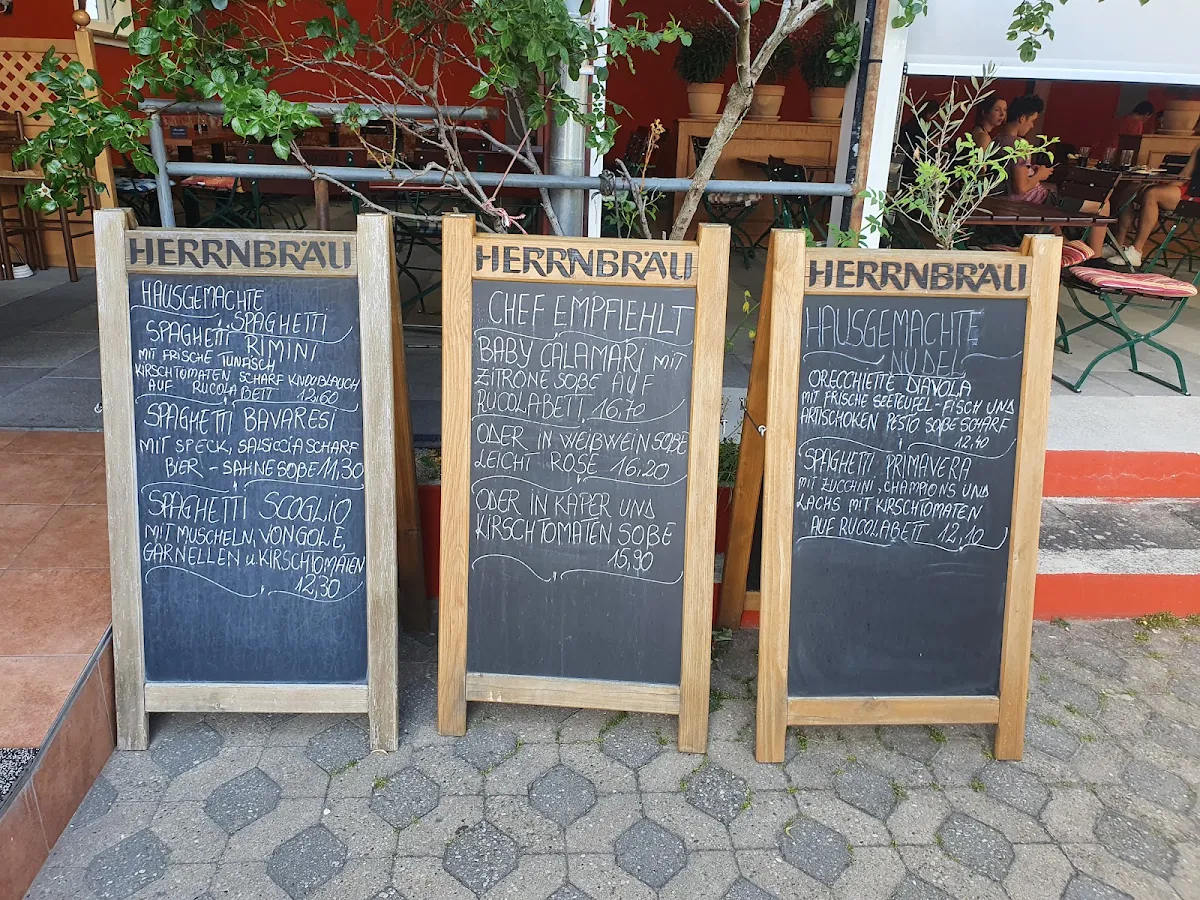 HERRNBRÄU
HAUSGEMACHTE
SPAGHETTI
SPAGHETTI RIMINI
MIT FRISCHE TUNFISCH
KIRSCHTOMATEN, SCHARF KNOBLAUCH
AUF RUCOLABETT 12,60
SPAGHETTI BAVARESI
MIT SPECK, SALSICCIA SCHARF
BIER - SAHNE SOßE 11,30
SPAGHETTI SCOGLIO
MIT MUSCHELN, VONGOLE,
GARNELLEN u. KIRSCHTOMATEN
12,30
HERRNBRÄU
CHEF EMPFIEHLT
BABY CALAMARI MIT
ZITRONE SOßE AUF
RUCOLABETT 16,70
ODER IN WEIßWEIN SOßE
LEICHT ROSE 16,20
ODER IN KAPER UND
KIRSCHTOMATEN SOßE
15,90
HERRNBRÄU
HAUSGEMACHTE
NUDEL
ORECCHIETTE DIAVOLA
MIT FRISCHE SEETEUFEL-FISCH UND
ARTISCHOKEN PESTO SOßE SCHARF
12.40
SPAGHETTI PRIMAVERA
MIT ZUCCHINI, CHAMPIONS UND
LACHS MIT KIRSCHTOMATEN
AUF RUCOLABETT 12,10